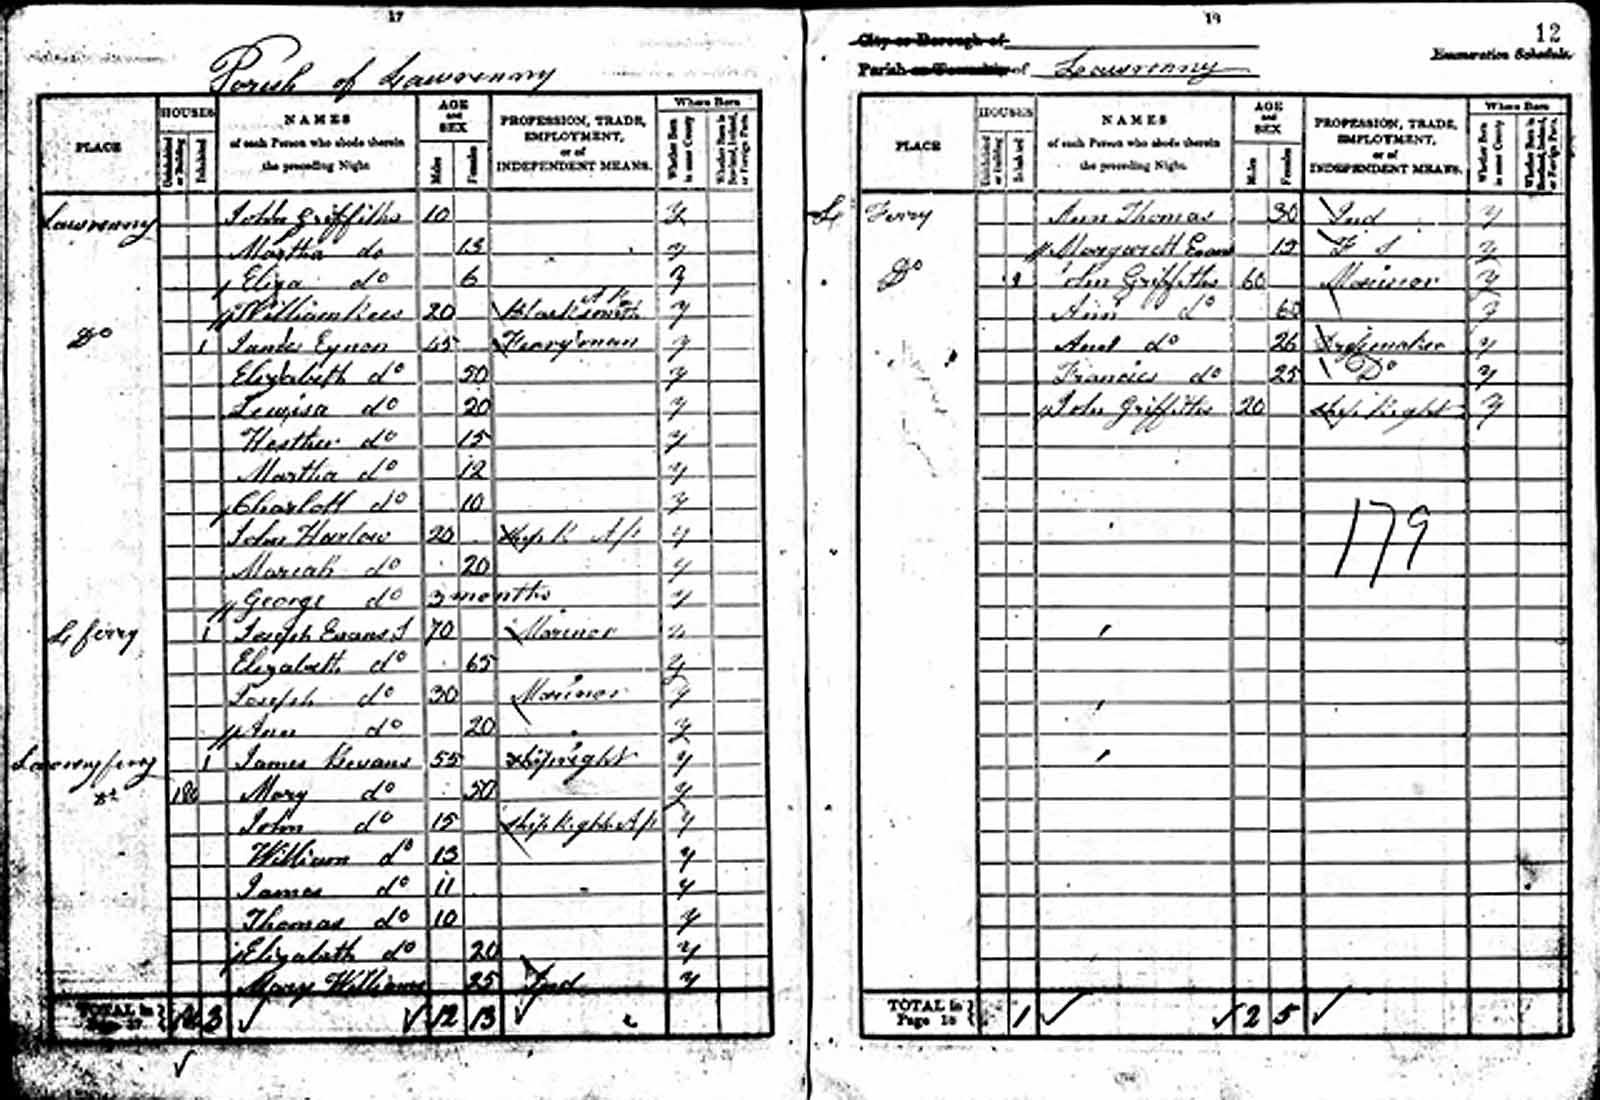 17
Parish of Lawrenny
PLACE
HOUSES
Uninhabited or Building
Inhabited
NAMES
of each Person who abode therein
the preceding Night
AGE and SEX
Males
Females
PROFESSION, TRADE, EMPLOYMENT, or of INDEPENDENT MEANS.
Where Born
Whether Born in same County
Whether Born in Scotland, Ireland, or Foreign Parts.
Lawrenny John Griffiths 10 y
Martha do 13 y
Eliza do 6 y
William Rees 20 Blacksmith Ap y
Do 1 James Eynon 45 Ferryman y
Elizabeth do 50 y
Lewisa do 20 y
Hesther do 15 y
Martha do 12 y
Charlott do 10 y
John Harlow 20 Ship R Ap y
Mariah do 20 y
George do 3 months y
L ferry 1 Joseph Evans 70 Marinor y
Elizabeth do 65 y
Joseph do 30 Marinor y
Ann do 20 y
1 James Bevans 55 shipright y
Mary do 50 y
John do 15 Ship Right Ap y
William do 13 y
James do 11 y
Thomas do 10 y
Elizabeth do 20 y
Mary Williams 25 Ind y
TOTAL in Page 17 3 12 13
18
12
City or Borough of
Enumeration Schedule.
Parish or Township of Lawrenny
PLACE
HOUSES
Uninhabited or Building
Inhabited
NAMES
of each Person who abode therein
the preceding Night.
AGE and SEX
Males
Females
PROFESSION, TRADE, EMPLOYMENT, or of INDEPENDENT MEANS.
Where Born
Whether Born in same County
Whether Born in Scotland, Ireland, or Foreign Parts.
L Ferry Ann Thomas 30 Ind y
Margarett Evans 15 F S y
Do 1 John Griffiths 60 Marinor y
Ann do 60 y
And do 26 y
Francies do 25 Do y
John Griffiths 20 Ship Right y
179
TOTAL in Page 18 1 2 5